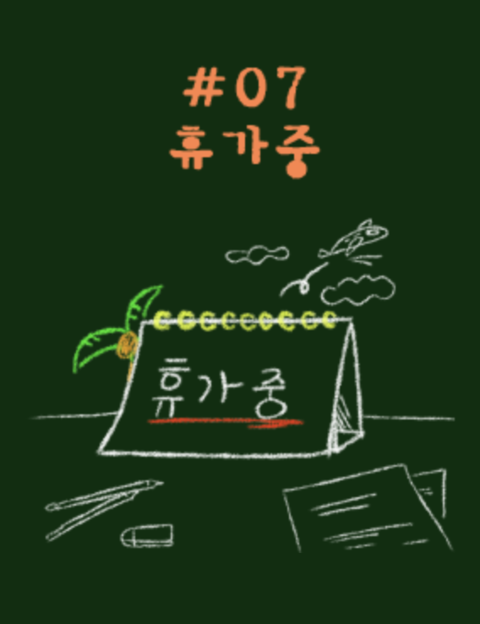 #07
휴가중
휴가중